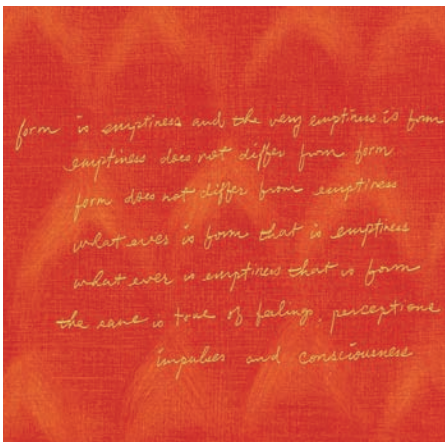 form is emptiness and the very emptiness is form
emptiness does not differ from form
form does not differ from emptiness
what ever is form that is emptiness
what ever is emptiness that is form
the same is true of feelings, perceptions
impulses and consciousness